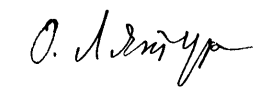 О. Лятур